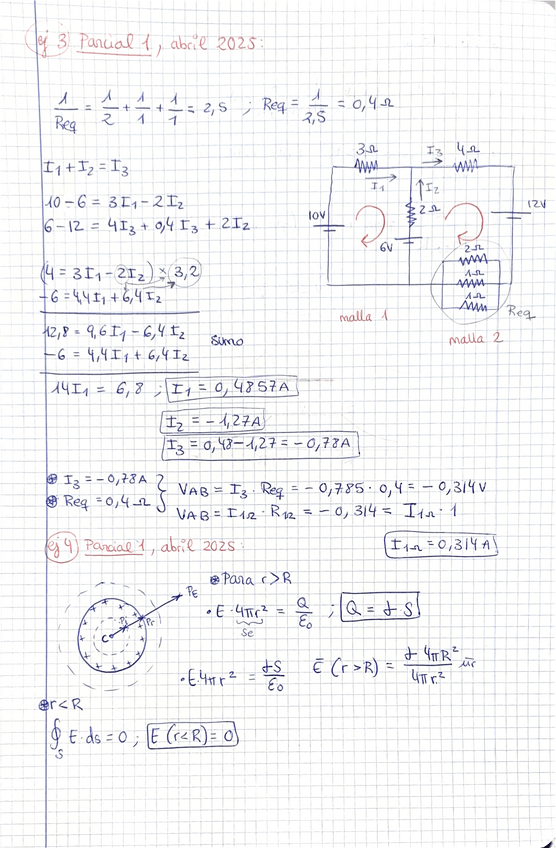 ej 3 Parcial 1, abril 2025:
1/Req = 1/2 + 1/1 + 1/1 = 2,5 ; Req = 1/2,5 = 0,4 Ω
I1 + I2 = I3
10 - 6 = 3I1 - 2I2
6 - 12 = 4I3 + 0,4 I3 + 2I2
(4 = 3I1 - 2I2) × 3,2
-6 = 4,4I1 + 6,4I2
12,8 = 9,6I1 - 6,4I2
sumo
-6 = 4,4I1 + 6,4I2
14I1 = 6,8 ; I1 = 0,4857A
I2 = -1,27A
I3 = 0,48 - 1,27 = -0,78A
3Ω
I3
4Ω
I1
I2
2Ω
10V
12V
6V
2Ω
1Ω
1Ω
Req
malla 1
malla 2
I3 = -0,78A
Req = 0,4 Ω
VAB = I3 · Req = -0,785 · 0,4 = -0,314V
VAB = I1Ω · R1Ω = -0,314 = I1Ω · 1
I1Ω = 0,314A
ej 4 Parcial 1, abril 2025:
Para r>R
· E · 4πr² = Q/ε0 ; Q = ɟ S
Se
· E · 4πr² = ɟS/ε0 E (r>R) = ɟ 4πR²/4πr² ur
PE
Pi
Pc
C
r<R
∮S E · ds = 0 ; E (r<R) = 0